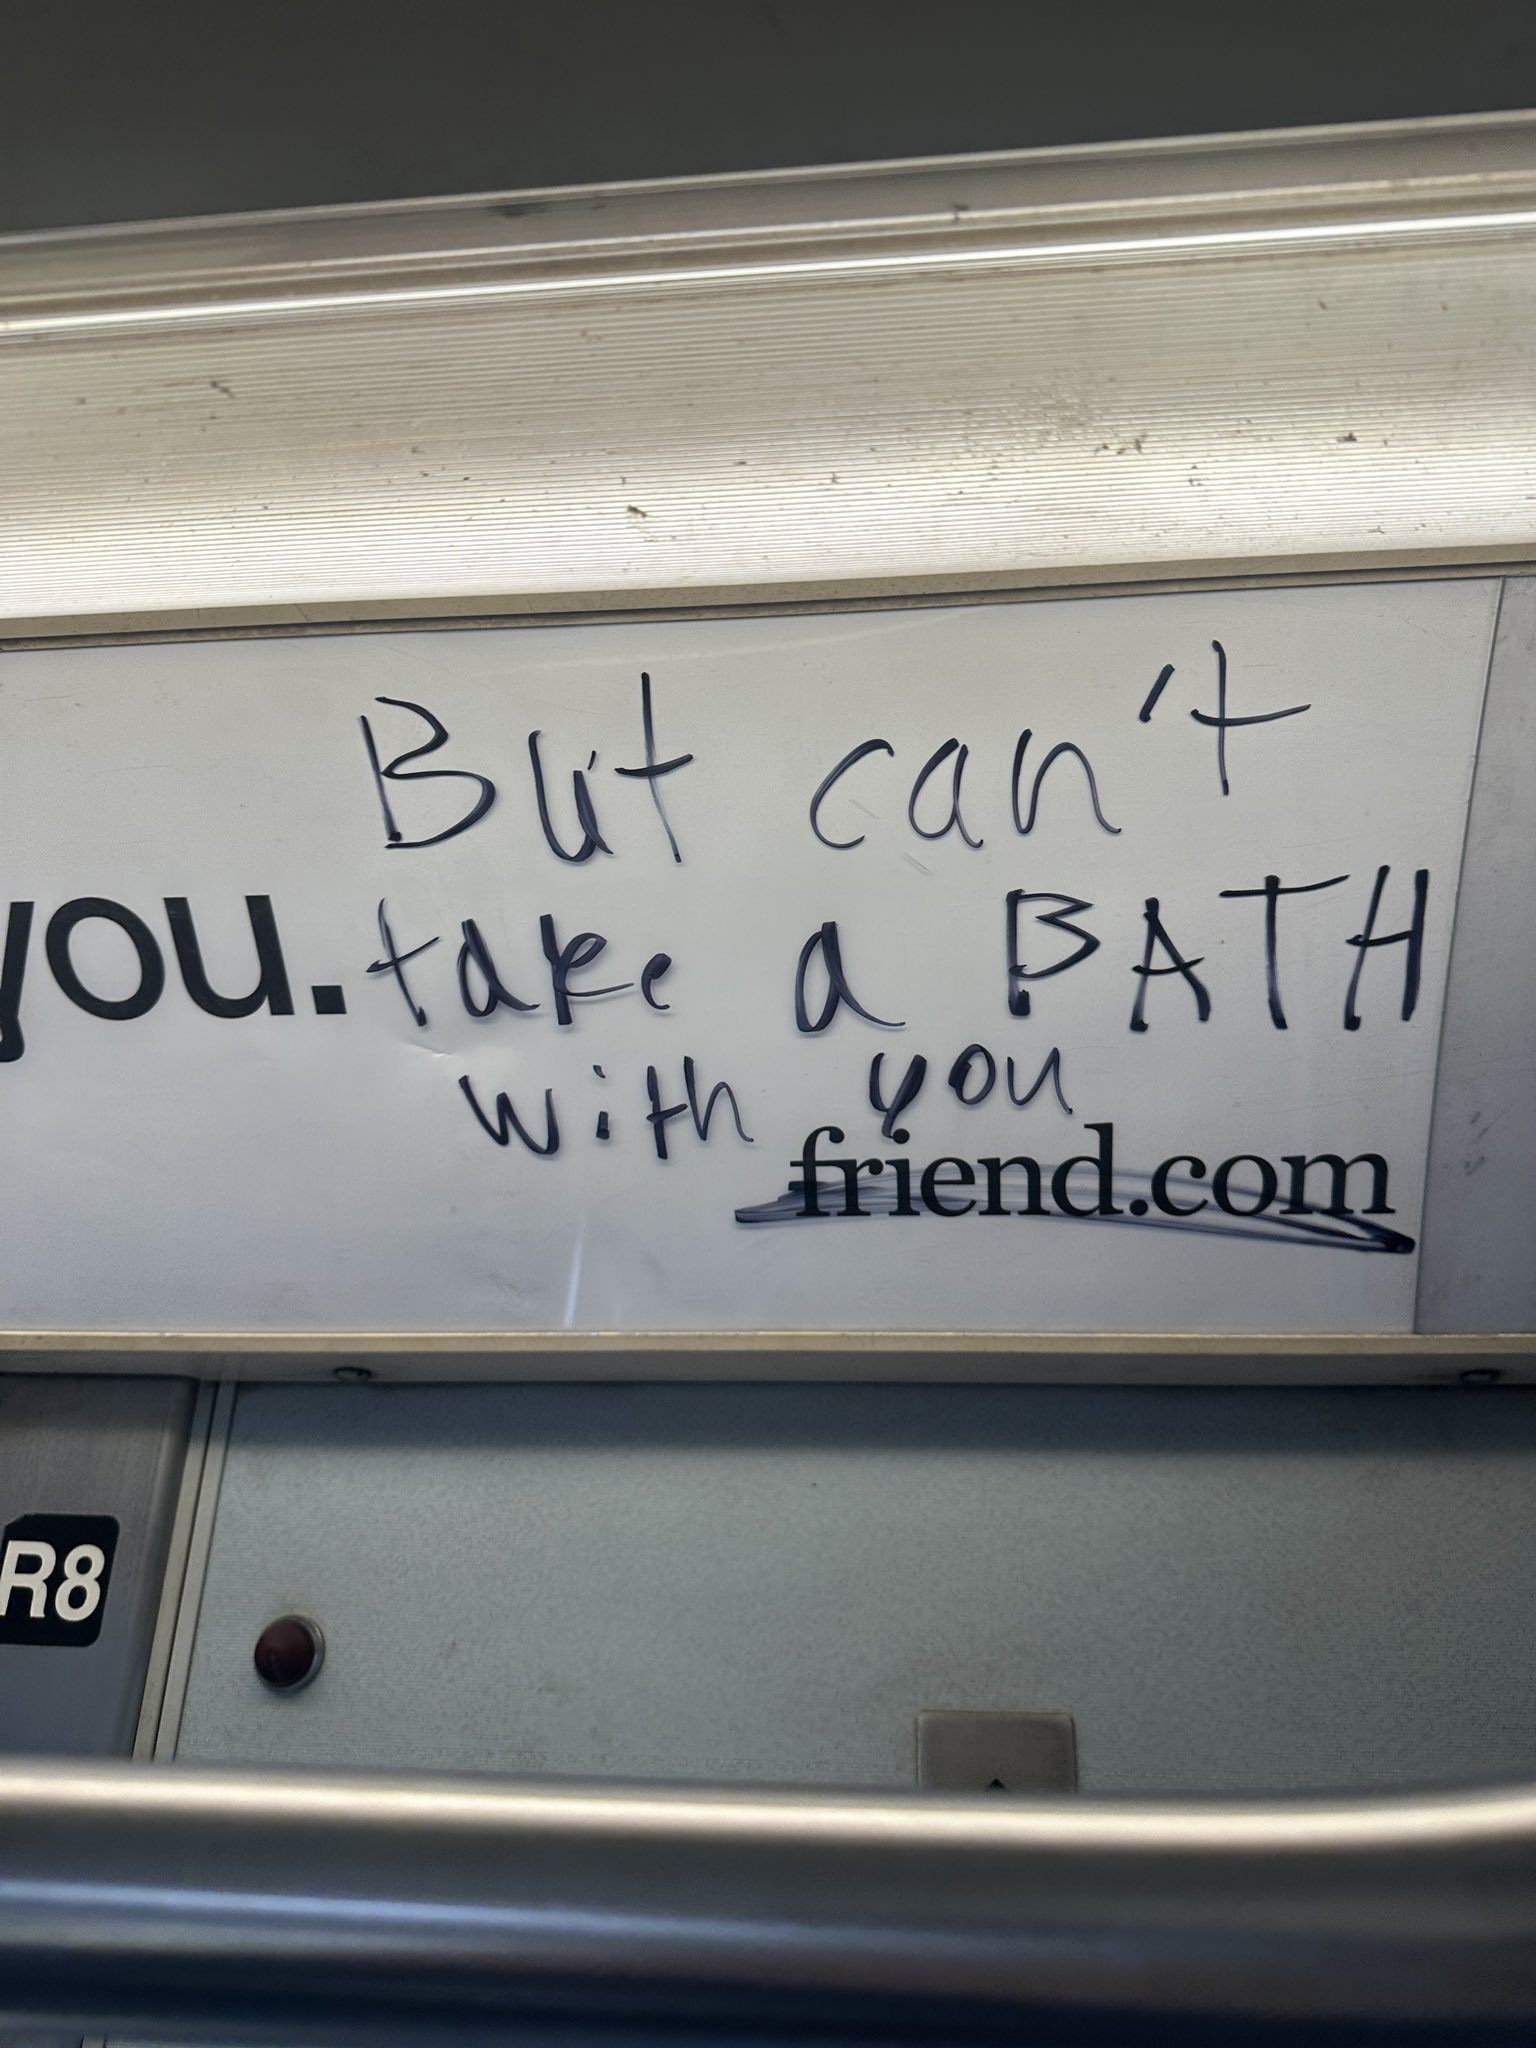 But can't
you. take a BATH
with you
friend.com
R8